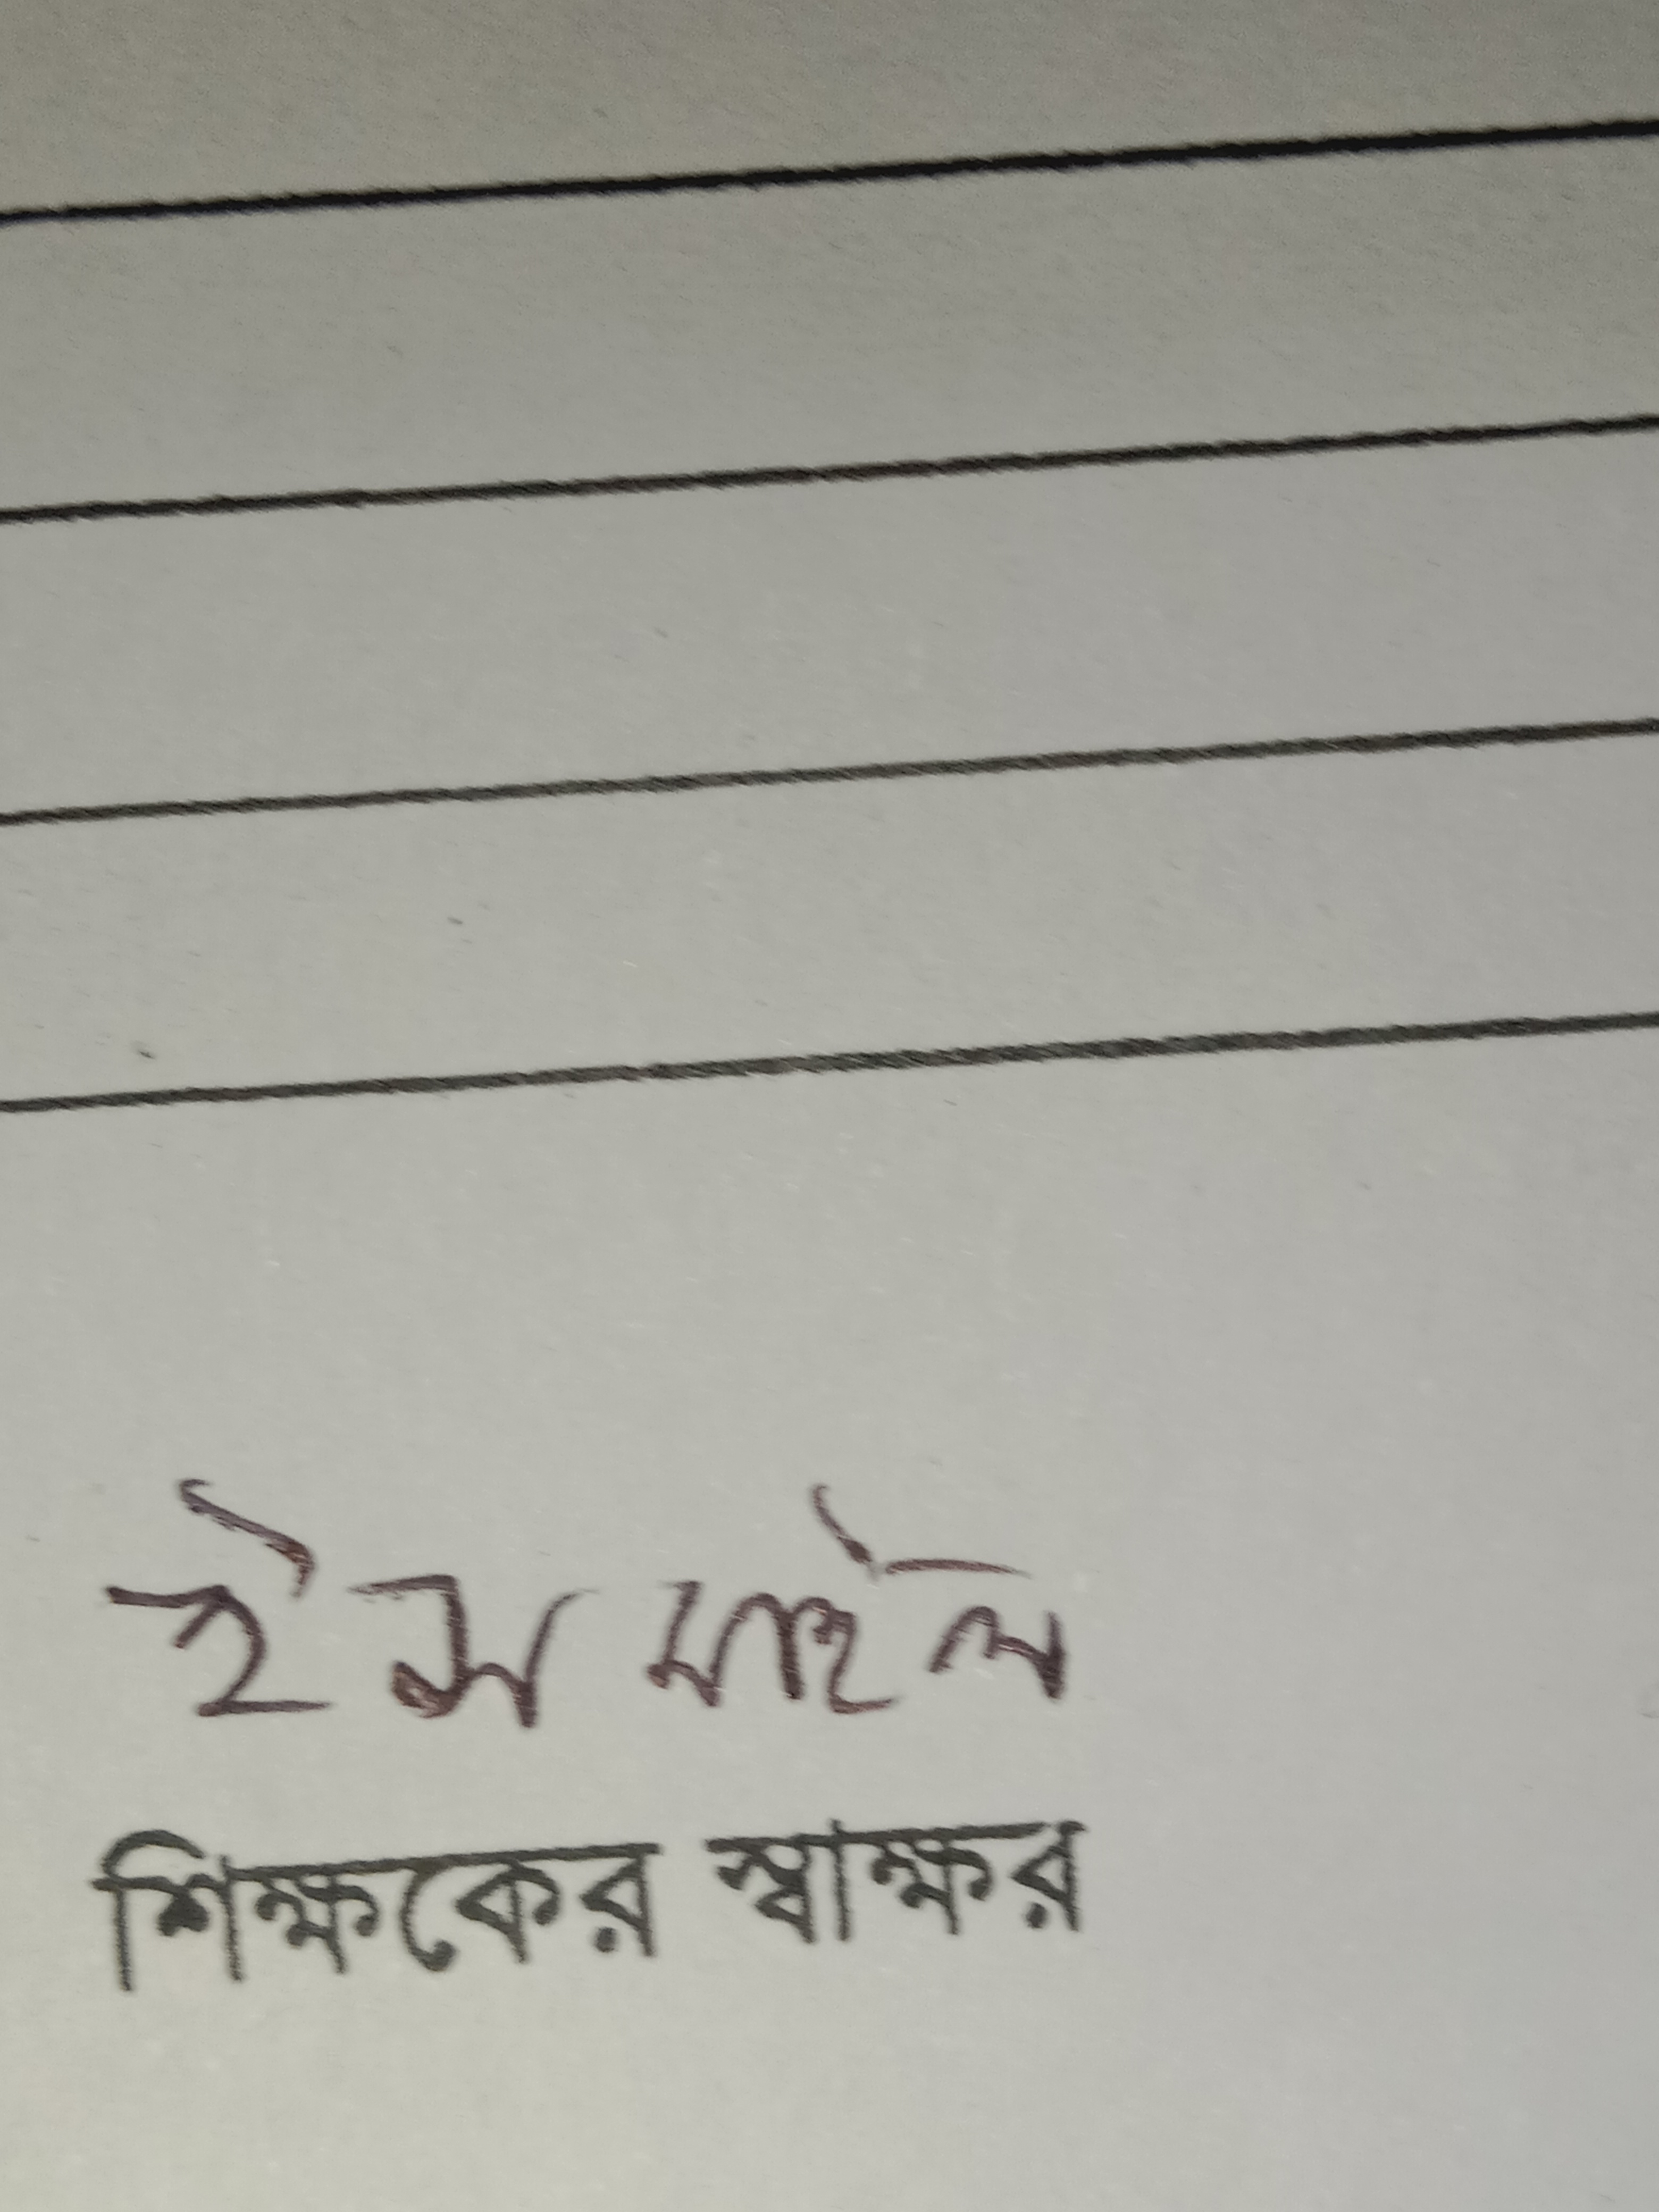 ইসমাইল
শিক্ষকের স্বাক্ষর